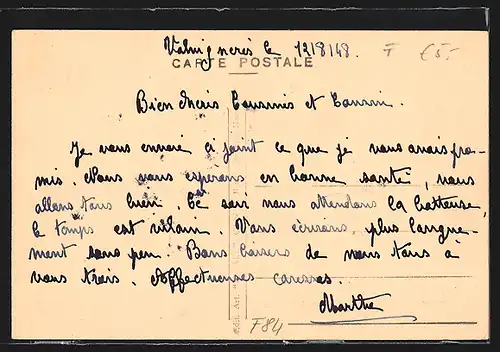 le 12/8/48.
T €5.-
CARTE POSTALE
Bien chers Cousines et Cousin.
Je vous envoie ci joint ce que je vous avais pro-
mis. Nous vous esperons en bonne santé, nous
allons tous bien. Ce soir nous attendons la batteuse,
le temps est vilain. Vous écrirons plus longue-
ment sous peu. Bons baisers de nous tous à
vous trois. Affectueuses caresses.
Marthe
Édit. Art.
F84